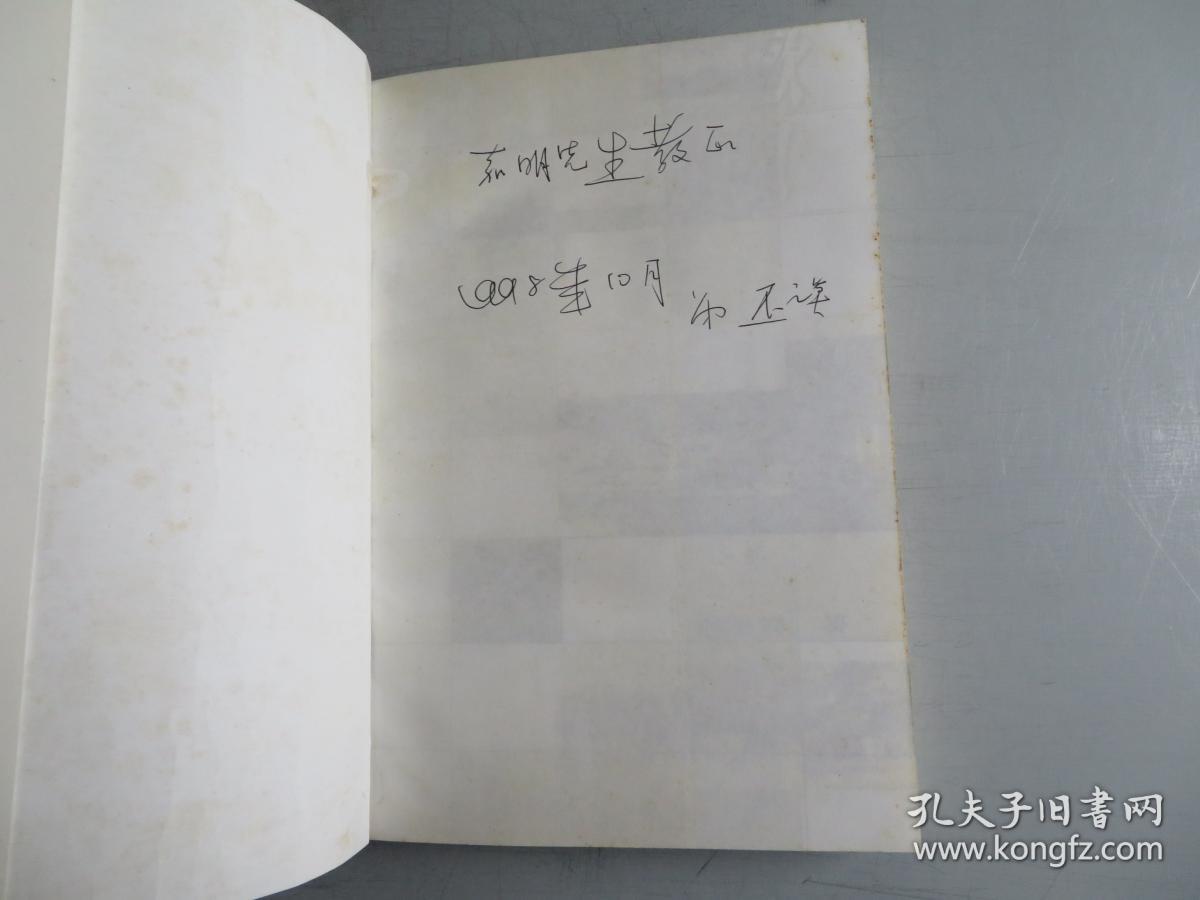 明先生教正
1998年10月
丕谟
孔夫子旧书网
www.kongfz.com